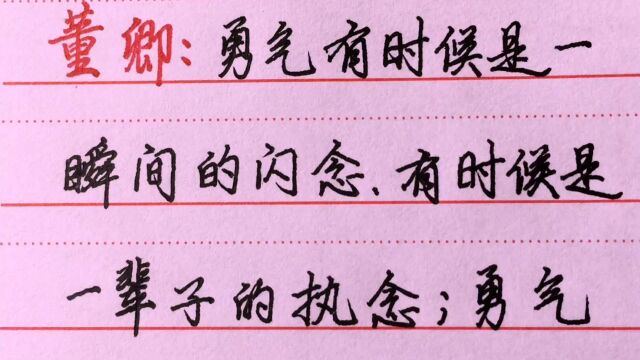 董卿：勇气有时候是一
瞬间的闪念、有时候是
一辈子的执念；勇气